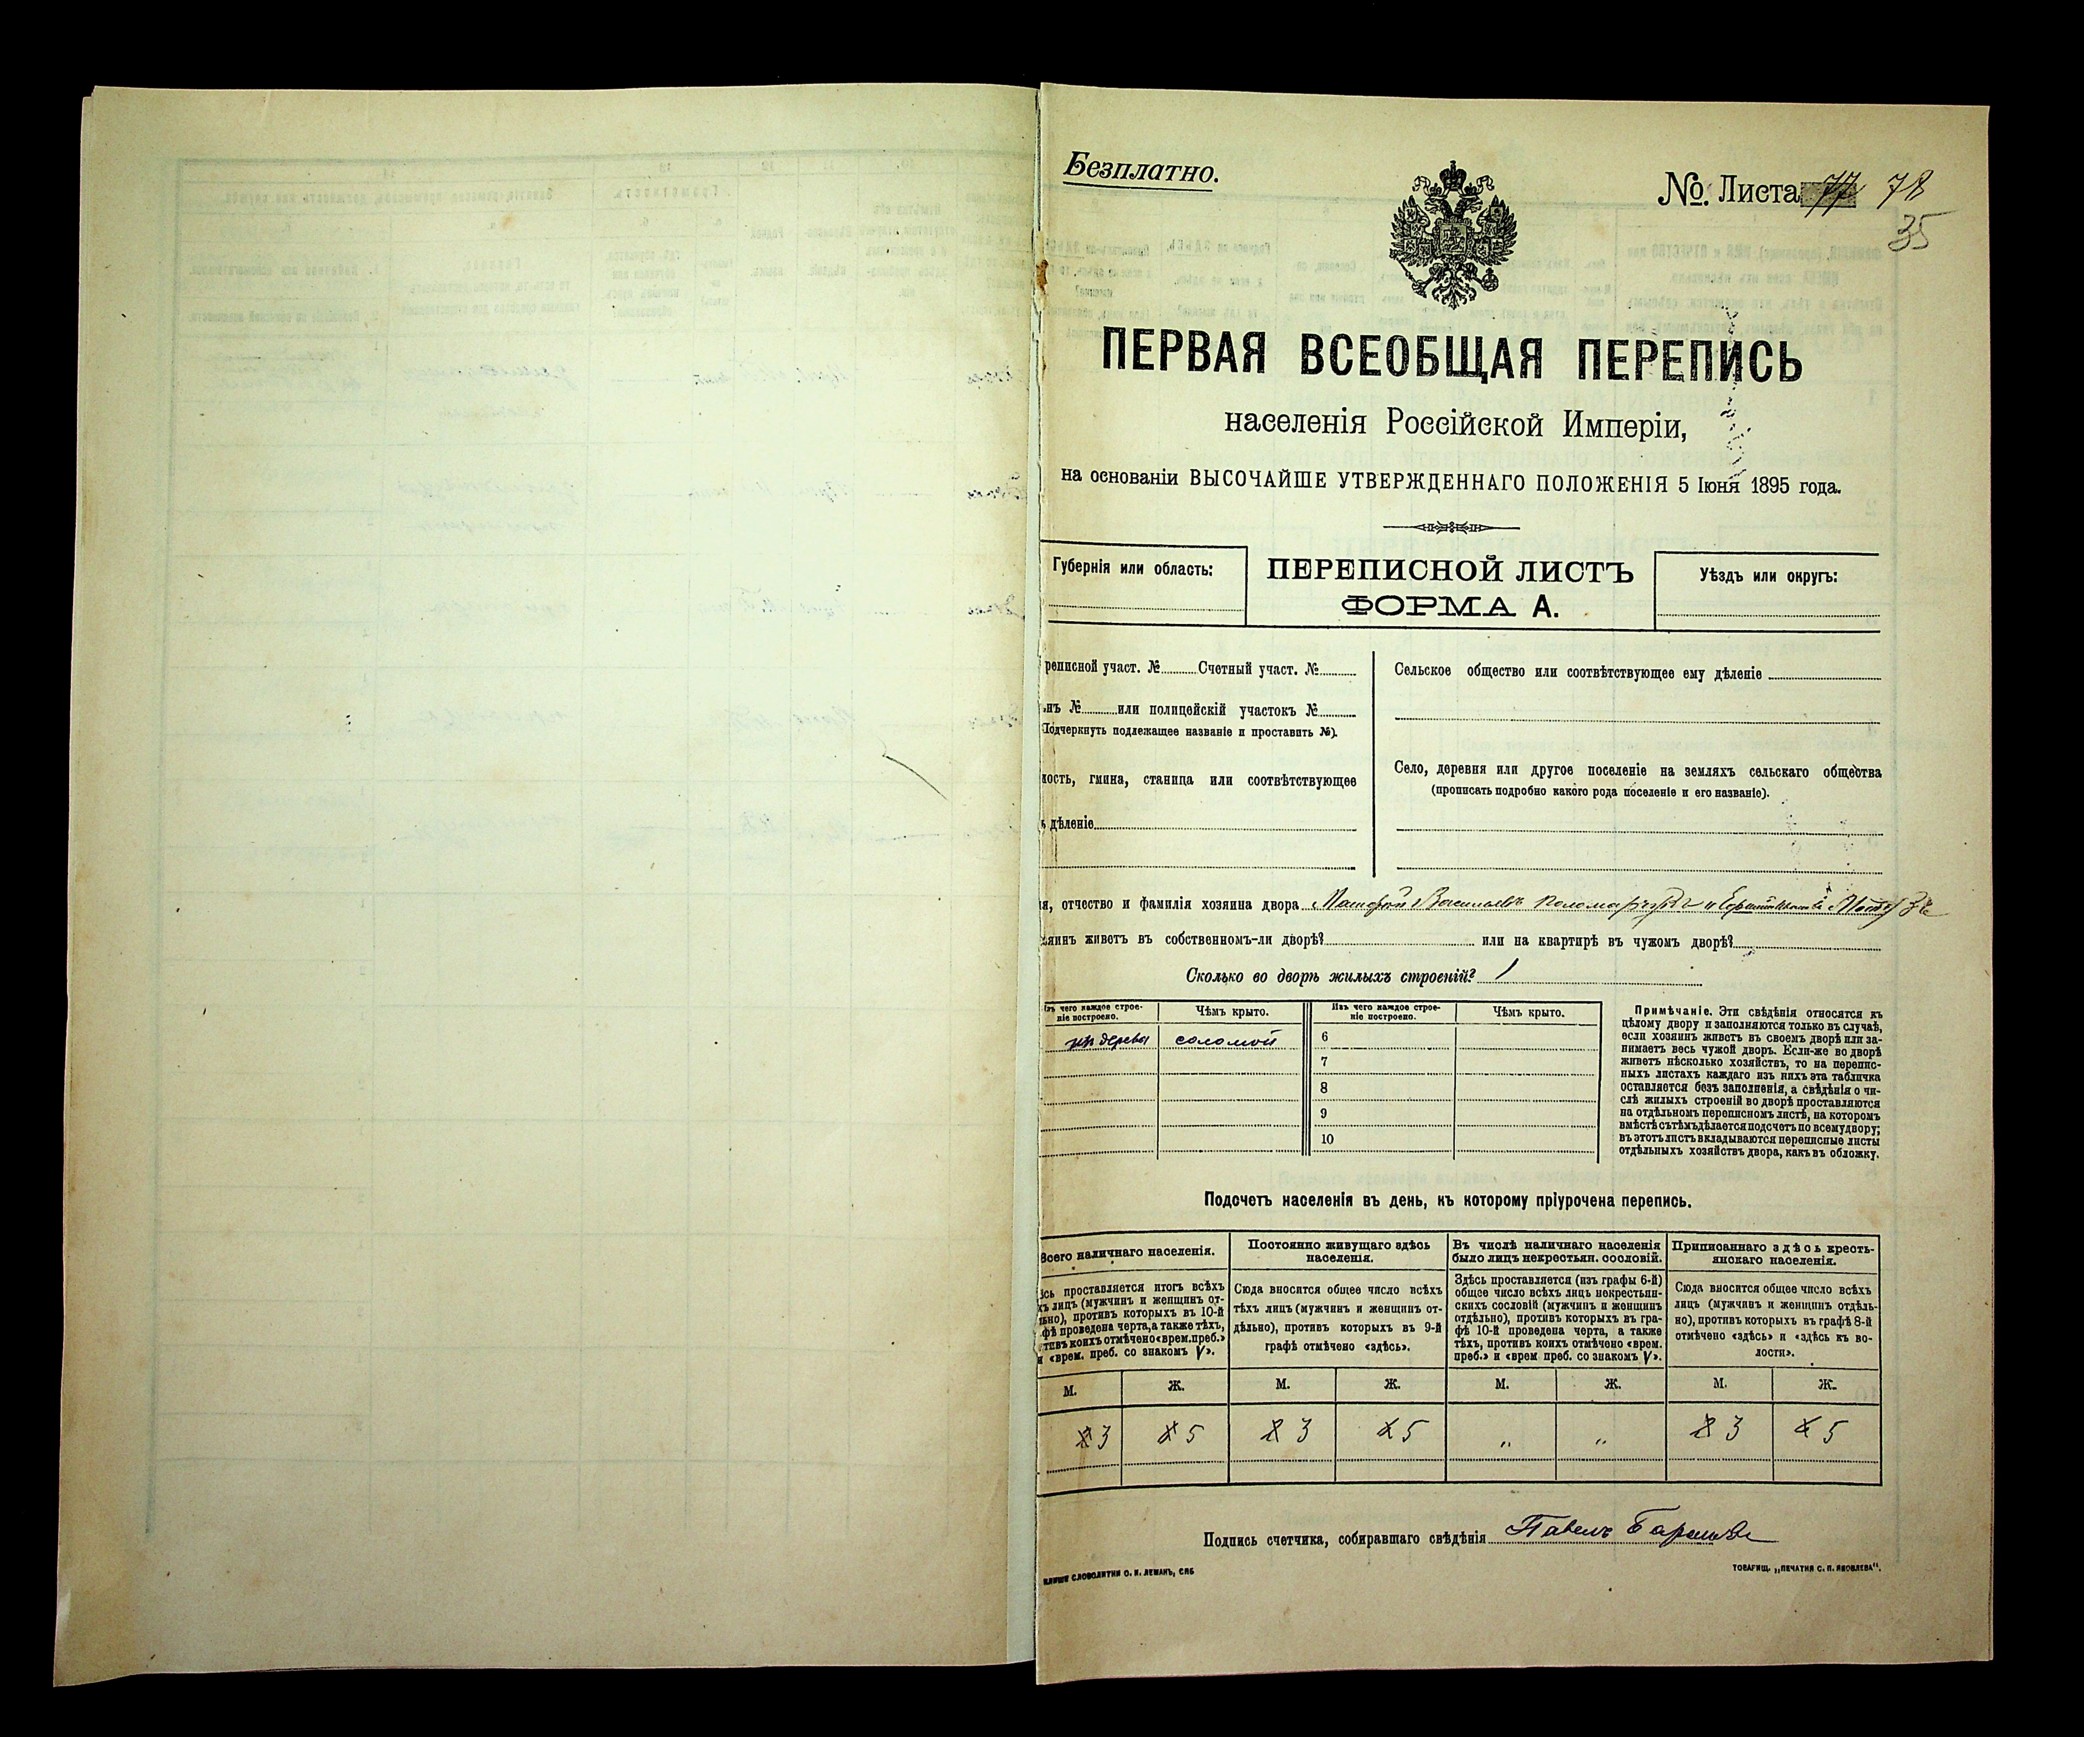 Безплатно.
№. Листа 77 78
35
ПЕРВАЯ ВСЕОБЩАЯ ПЕРЕПИСЬ
населенія Россійской Имперіи,
на основаніи ВЫСОЧАЙШЕ УТВЕРЖДЕННАГО ПОЛОЖЕНІЯ 5 Іюня 1895 года.
Губернія или область:
ПЕРЕПИСНОЙ ЛИСТЪ
ФОРМА А.
Уѣздъ или округъ:
реписной участ. № Счетный участ. №
нъ № или полицейскій участокъ №
Подчеркнуть подлежащее названіе и проставить №).
ность, гмина, станица или соотвѣтствующее
ь дѣленіе
Сельское общество или соотвѣтствующее ему дѣленіе
Село, деревня или другое поселеніе на земляхъ сельскаго общества
(прописать подробно какого рода поселеніе и его названіе).
я, отчество и фамилія хозяина двора Васильевъ
яинъ живетъ въ собственномъ-ли дворѣ? или на квартирѣ въ чужомъ дворѣ?
Сколько во дворѣ жилыхъ строеній? 1
Изъ чего каждое строе-
ніе построено.
Чѣмъ крыто.
Изъ чего каждое строе-
ніе построено.
Чѣмъ крыто.
изъ дерева соломой
6
7
8
9
10
Примѣчаніе. Эти свѣдѣнія относятся къ
цѣлому двору и заполняются только въ случаѣ,
если хозяинъ живетъ въ своемъ дворѣ или за-
нимаетъ весь чужой дворъ. Если-же во дворѣ
живетъ нѣсколько хозяйствъ, то на перепис-
ныхъ листахъ каждаго изъ нихъ эта табличка
оставляется безъ заполненія, а свѣдѣнія о чи-
слѣ жилыхъ строеній во дворѣ проставляются
на отдѣльномъ переписномъ листѣ, на которомъ
вмѣстѣ съ тѣмъ дѣлается подсчетъ по всему двору;
въ этотъ листъ вкладываются переписные листы
отдѣльныхъ хозяйствъ двора, какъ въ обложку.
Подсчетъ населенія въ день, къ которому пріурочена перепись.
Всего наличнаго населенія.
ѣсь проставляется итогъ всѣхъ
хъ лицъ (мужчинъ и женщинъ от-
льно), противъ которыхъ въ 10-й
фѣ проведена черта, а также тѣхъ,
тивъ коихъ отмѣчено «врем. преб.»
и «врем. преб. со знакомъ V».
Постоянно живущаго здѣсь
населенія.
Сюда вносится общее число всѣхъ
тѣхъ лицъ (мужчинъ и женщинъ от-
дѣльно), противъ которыхъ въ 9-й
графѣ отмѣчено «здѣсь».
Въ числѣ наличнаго населенія
было лицъ некрестьян. сословій.
Здѣсь проставляется (изъ графы 6-й)
общее число всѣхъ лицъ некрестьян-
скихъ сословій (мужчинъ и женщинъ
отдѣльно), противъ которыхъ въ гра-
фѣ 10-й проведена черта, а также
тѣхъ, противъ коихъ отмѣчено «врем.
преб.» и «врем преб. со знакомъ V».
Приписаннаго здѣсь кресть-
янскаго населенія.
Сюда вносится общее число всѣхъ
лицъ (мужчинъ и женщинъ отдѣль-
но), противъ которыхъ въ графѣ 8-й
отмѣчено «здѣсь» и «здѣсь къ во-
лости».
М. Ж. М. Ж. М. Ж. М. Ж.
3 5 3 5 „ „ 3 5
Подпись счетчика, собиравшаго свѣдѣнія Павелъ
СЛОВОЛИТНИ О. И. ЛЕМАНЪ, СПБ
ТОВАРИЩ. „ПЕЧАТНЯ С. П. ЯКОВЛЕВА".